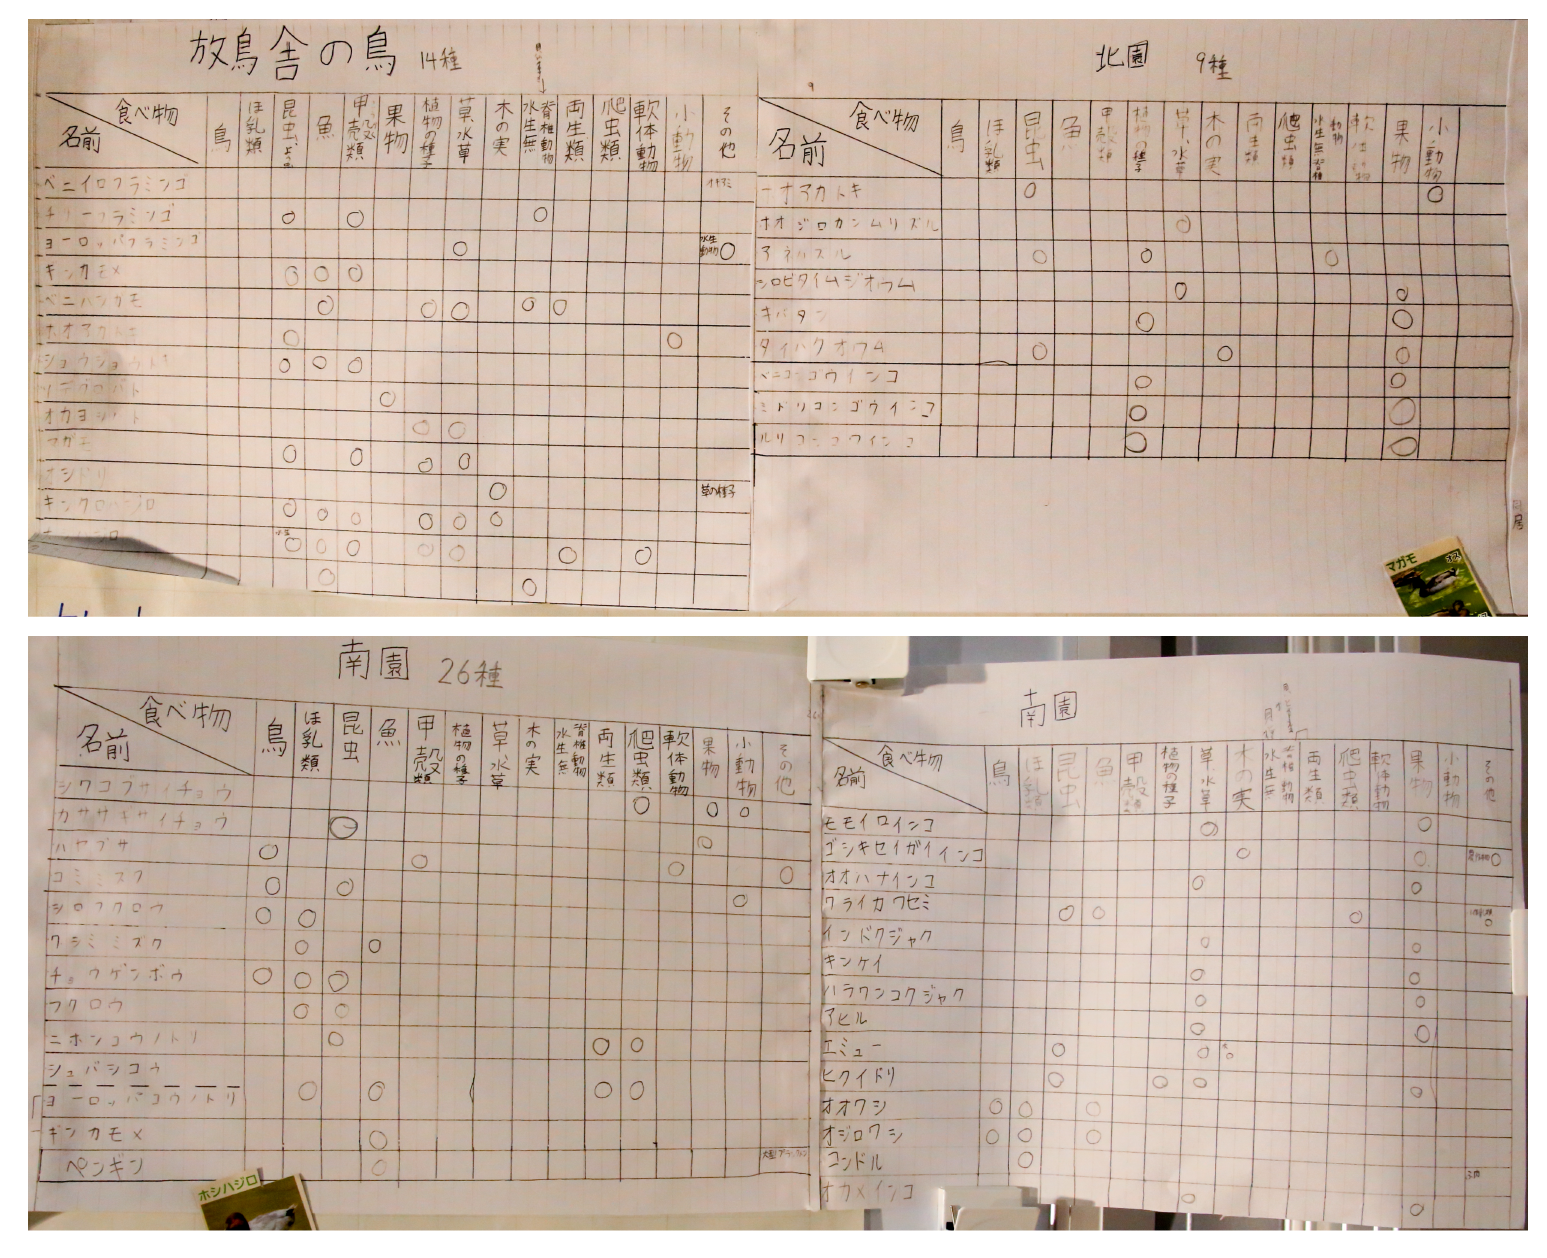 放鳥舎の鳥 14種
食べ物
名前
鳥
ほ乳類
昆虫
魚
甲殻類
果物
植物の種子
草水草
木の実
水生無脊椎動物
両生類
爬虫類
軟体動物
小動物
その他
ベニイロフラミンゴ
オキアミ
チリーフラミンゴ
ヨーロッパフラミンゴ
水生動物
ギンカモメ
ベニハシガモ
ホオアカトキ
ショウジョウトキ
オカヨシガモ
マガモ
オシドリ
草の種子
キンクロハジロ
北園 9種
食べ物
名前
鳥
ほ乳類
昆虫
魚
甲殻類
植物の種子
草、水草
木の実
両生類
爬虫類
水生無脊椎動物
軟体動物
果物
小動物
ホオアカトキ
ホオジロカンムリヅル
アネハヅル
シロビタイムジオウム
キバタン
タイハクオウム
ベニコンゴウインコ
ミドリコンゴウインコ
ルリコンゴウインコ
マガモ オス
南園 26種
食べ物
名前
鳥
ほ乳類
昆虫
魚
甲殻類
植物の種子
草水草
木の実
水生無脊椎動物
両生類
爬虫類
軟体動物
果物
小動物
その他
シワコブサイチョウ
カササギサイチョウ
ハヤブサ
コミミズク
シロフクロウ
ワシミミズク
チョウゲンボウ
フクロウ
ニホンコウノトリ
シュバシコウ
ヨーロッパコウノトリ
ギンカモメ
ペンギン
ホシハジロ
南園
食べ物
名前
鳥
ほ乳類
昆虫
魚
甲殻類
植物の種子
草水草
木の実
水生無脊椎動物
両生類
爬虫類
軟体動物
果物
小動物
その他
モモイロインコ
ゴシキセイガイインコ
オオハナインコ
ワライカワセミ
インドクジャク
キンケイ
ハラワンコクジャク
アヒル
エミュー
ヒクイドリ
オオワシ
オジロワシ
コンドル
オカメインコ